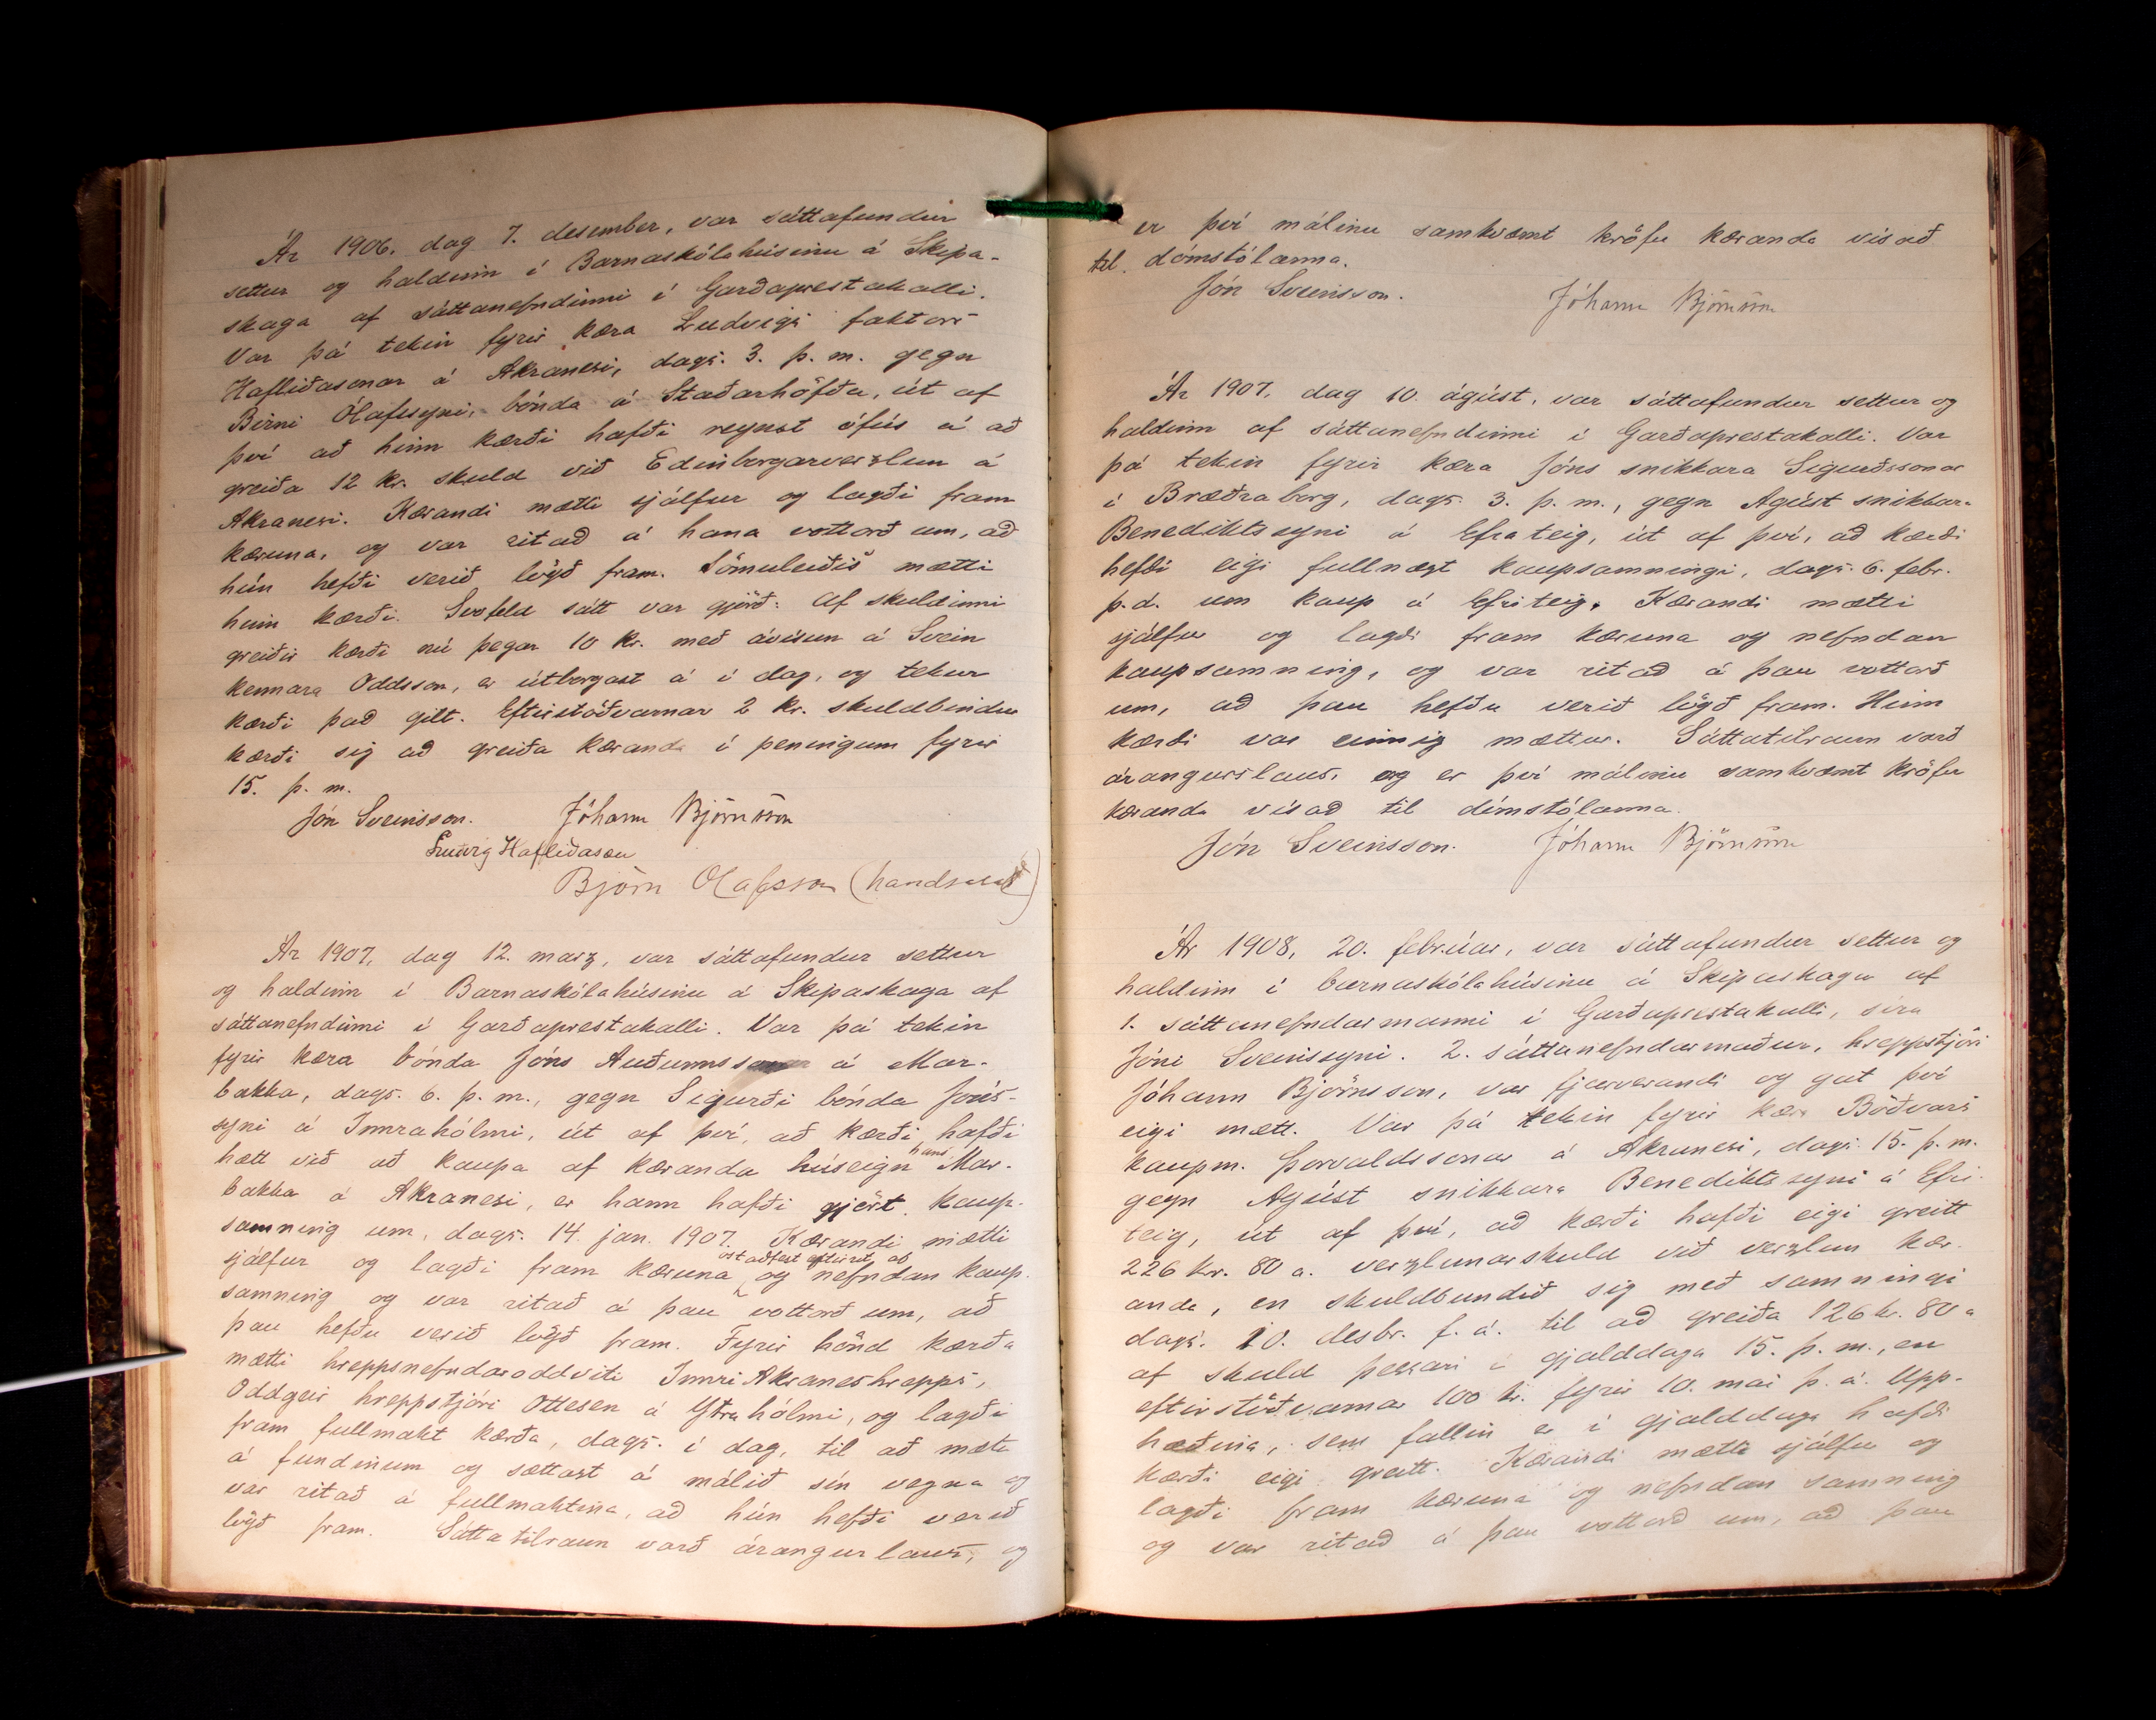 Ár 1906, dag 7. desember, var sáttafundur
settur og haldinn í Barnaskólahúsinu á Skipa-
skaga af sáttanefndinni í Garðaprestakalli.
Var þá tekin fyrir kæra Ludvigs faktors
Hafliðasonar á Akranesi, dags. 3. þ. m. gegn
Birni Ólafssyni, bónda á Staðarhöfða, út af
því að hinn kærði hafði reynst ófús á að
greiða 12 kr. skuld við Edinborgarverzlun á
Akranesi. Kærandi mætti sjálfur og lagði fram
kæruna, og var ritað á hana vottorð um, að
hún hefði verið lögð fram. Sömuleiðis mætti
hinn kærði. Svofeld sátt var gjörð: Af skuldinni
greiðir kærði nú þegar 10 kr. með ávísun á Svein
kennara Oddsson, er útborgast á í dag, og tekur
kærði það gilt. Eftirstöðvarnar 2 kr. skuldbindur
kærði sig að greiða kæranda í peningum fyrir
15. þ. m.
Jón Sveinsson. Jóhann Björnsson
Ludvig Hafliðason
Björn Olafsson (handsalað)
Ár 1907, dag 12. marz, var sáttafundur settur
og haldinn í Barnaskólahúsinu á Skipaskaga af
sáttanefndinni í Garðaprestakalli. Var þá tekin
fyrir kæra bónda Jóns Auðunnssonar á Mar-
bakka, dags. 6. þ. m., gegn Sigurði bónda Jóns-
syni á Innrahólmi, út af því, að kærði hafði
hætt við að kaupa af kæranda húseign hans Mar-
bakka á Akranesi, er hann hafði gjört kaup-
samning um, dags. 14. jan. 1907. Kærandi mætti
sjálfur og lagði fram kæruna og óstaðfest eftirrit af nefndan kaup-
samning og var ritað á þau vottorð um, að
þau hefðu verið lögð fram. Fyrir hönd kærða
mætti hreppsnefndaroddviti Innri Akraneshrepps,
Oddgeir hreppstjóri Ottesen á Ytrahólmi, og lagði
fram fullmakt kærða, dags. í dag, til að mæta
á fundinum og sættast á málið sín vegna og
var ritað á fullmaktina, að hún hefði verið
lögð fram. Sáttatilraun varð árangurlaus, og
er því málinu samkvæmt kröfu kæranda vísað
til dómstólanna.
Jón Sveinsson. Jóhann Björnsson
Ár 1907, dag 10. ágúst, var sáttafundur settur og
haldinn af sáttanefndinni í Garðaprestakalli. Var
þá tekin fyrir kæra Jóns snikkara Sigurðssonar
í Bræðraborg, dags. 3. þ. m., gegn Agúst snikkara
Benediktssyni á Efrateig, út af því, að kærði
hefði eigi fullnægt kaupsamningi, dags. 6. febr.
þ. á. um kaup á Efriteig. Kærandi mætti
sjálfur og lagði fram kæruna og nefndan
kaupsamning, og var ritað á þau vottorð
um, að þau hefðu verið lögð fram. Hinn
kærði var einnig mættur. Sáttatilraun varð
árangurslaus, og er því málinu samkvæmt kröfu
kæranda vísað til dómstólanna.
Jón Sveinsson. Jóhann Björnsson
Ár 1908, 20. febrúar, var sáttafundur settur og
haldinn í barnaskólahúsinu á Skipaskaga af
1. sáttanefndarmanni í Garðaprestakalli, síra
Jóni Sveinssyni. 2. sáttanefndarmaður, hreppstjóri
Jóhann Björnsson, var fjarverandi og gat því
eigi mætt. Var þá tekin fyrir kæra Böðvars
kaupm. Þorvaldssonar á Akranesi, dags. 15. þ. m.
gegn Agúst snikkara Benediktssyni á Efri-
teig, út af því, að kærði hafði eigi greitt
226 kr. 80 a. verzlunarskuld við verzlun kær-
anda, en skuldbundið sig með samningi
dags. 10. desbr. f. á. til að greiða 126 kr. 80 a
af skuld þessari í gjalddaga 15. þ. m., en
eftirstöðvarnar 100 kr. fyrir 10. mai þ. á. Upp-
hæðina, sem fallin er í gjalddaga hafði
kærði eigi greitt. Kærandi mætti sjálfur og
lagði fram kæruna og nefndan samning
og var ritað á þau vottorð um, að þau